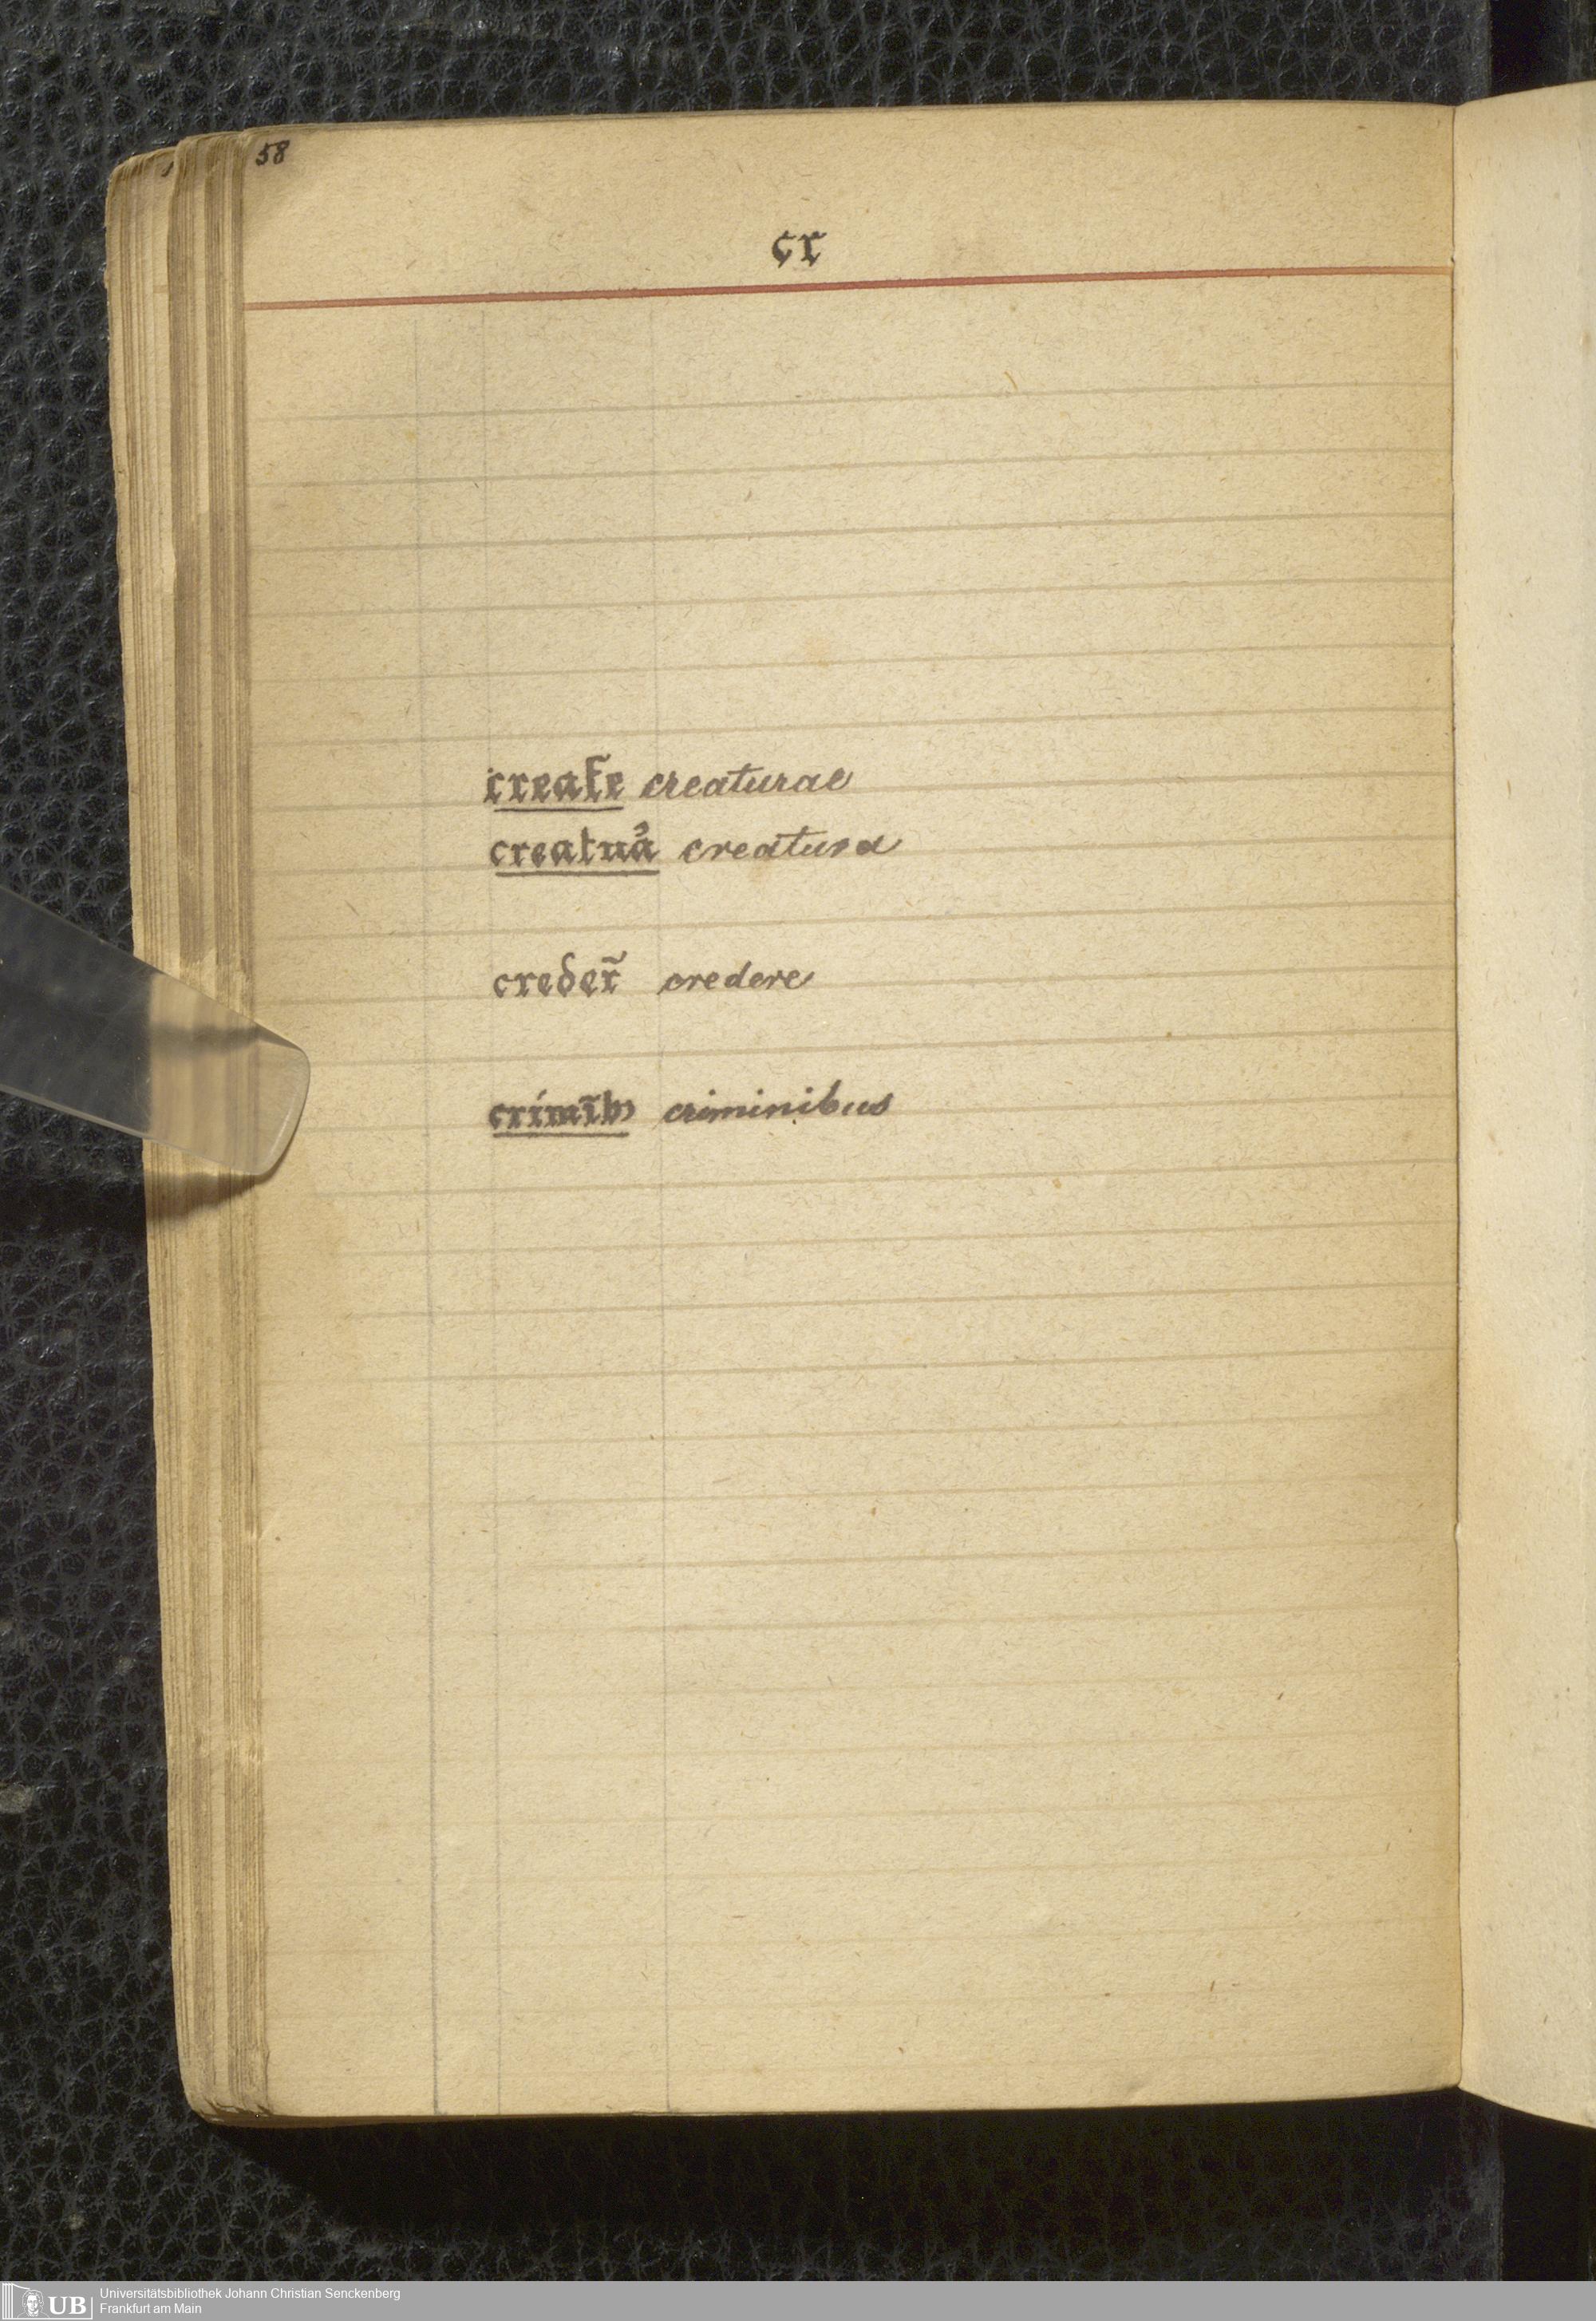 58
cr
creat̃e creaturae
creatua᷒ creatura
creder̃ credere
crimĩbꝫ criminibus
UB Universitätsbibliothek Johann Christian Senckenberg
Frankfurt am Main